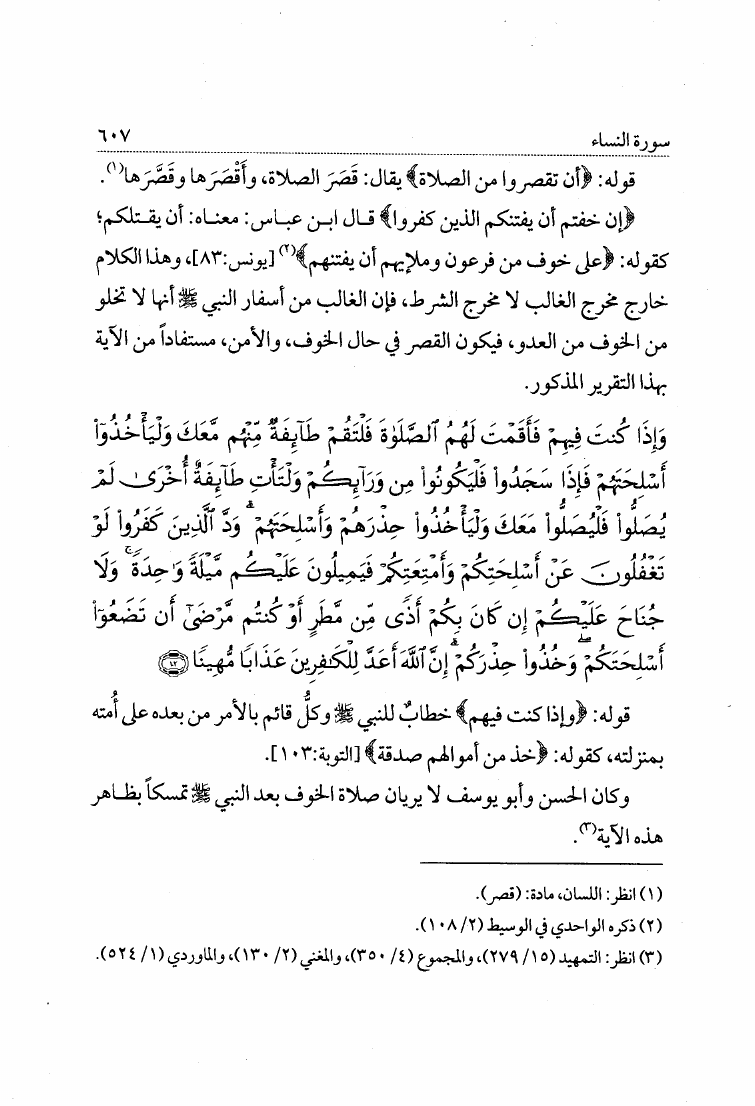 سورة النساء ٦٠٧
قوله: ﴿أن تقصروا من الصلاة﴾ يقال: قَصَرَ الصلاة، وأَقْصَرَها وقَصَّرَها(١).
﴿إن خفتم أن يفتنكم الذين كفروا﴾ قال ابن عباس: معناه: أن يقتلكم؛
كقوله: ﴿على خوف من فرعون وملإيهم أن يفتنهم﴾(٢) [يونس:٨٣]، وهذا الكلام
خارج مخرج الغالب لا مخرج الشرط، فإن الغالب من أسفار النبي ﷺ أنها لا تخلو
من الخوف من العدو، فيكون القصر في حال الخوف، والأمن، مستفاداً من الآية
بهذا التقرير المذكور.
وَإِذَا كُنتَ فِيهِمْ فَأَقَمْتَ لَهُمُ ٱلصَّلَوٰةَ فَلْتَقُمْ طَآئِفَةٌ مِّنْهُم مَّعَكَ وَلْيَأْخُذُوٓاْ
أَسْلِحَتَهُمْ فَإِذَا سَجَدُواْ فَلْيَكُونُواْ مِن وَرَآئِكُمْ وَلْتَأْتِ طَآئِفَةٌ أُخْرَىٰ لَمْ
يُصَلُّواْ فَلْيُصَلُّواْ مَعَكَ وَلْيَأْخُذُواْ حِذْرَهُمْ وَأَسْلِحَتَهُمْ ۗ وَدَّ ٱلَّذِينَ كَفَرُواْ لَوْ
تَغْفُلُونَ عَنْ أَسْلِحَتِكُمْ وَأَمْتِعَتِكُمْ فَيَمِيلُونَ عَلَيْكُم مَّيْلَةً وَٰحِدَةً ۚ وَلَا
جُنَاحَ عَلَيْكُمْ إِن كَانَ بِكُمْ أَذًى مِّن مَّطَرٍ أَوْ كُنتُم مَّرْضَىٰٓ أَن تَضَعُوٓاْ
أَسْلِحَتَكُمْ ۖ وَخُذُواْ حِذْرَكُمْ ۗ إِنَّ ٱللَّهَ أَعَدَّ لِلْكَٰفِرِينَ عَذَابًا مُّهِينًا
قوله: ﴿وإذا كنت فيهم﴾ خطابٌ للنبي ﷺ وكلُّ قائم بالأمر من بعده على أُمته
بمنزلته، كقوله: ﴿خذ من أموالهم صدقة﴾ [التوبة:١٠٣].
وكان الحسن وأبو يوسف لا يريان صلاة الخوف بعد النبي ﷺ تمسكاً بظاهر
هذه الآية(٣).
(١) انظر: اللسان، مادة: (قصر).
(٢) ذكره الواحدي في الوسيط (٢/ ١٠٨).
(٣) انظر: التمهيد (١٥/ ٢٧٩)، والمجموع (٤/ ٣٥٠)، والمغني (٢/ ١٣٠)، والماوردي (١/ ٥٢٤).